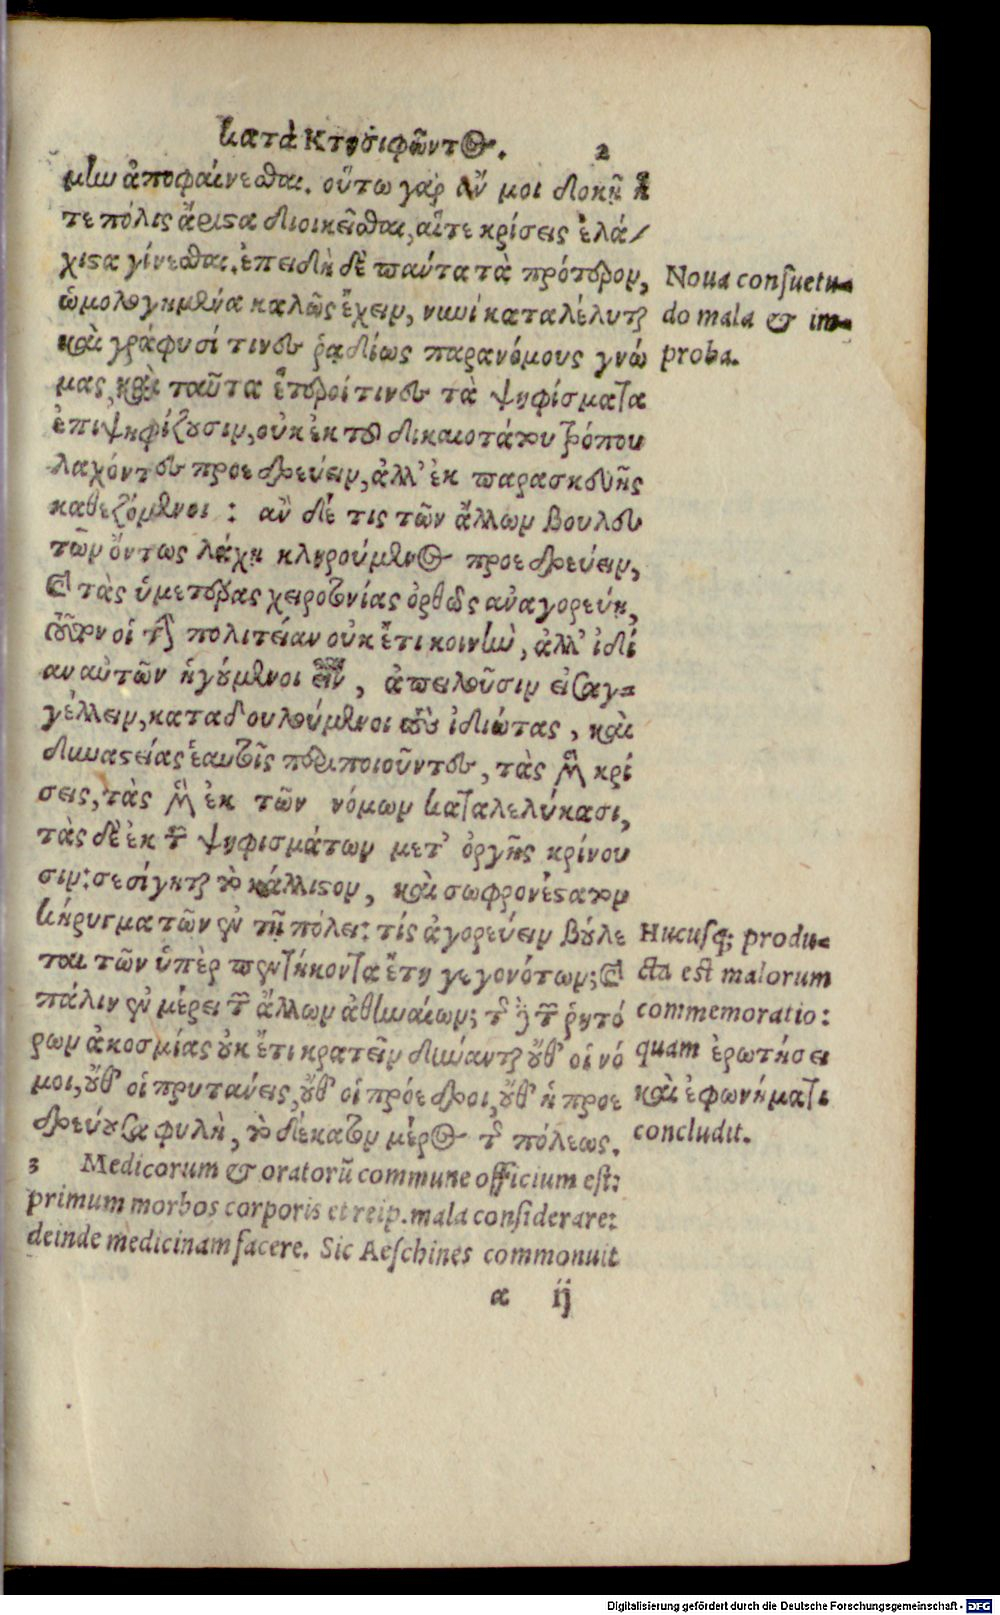 κατὰ Κτησιφῶντος. 2
μην ἀποφαίνεσθαι. οὕτω γὰρ ἄν μοι δοκῇ ἥ
τε πόλις ἄριστα διοικεῖσθαι, αἵτε κρίσεις ἐλά/
χιστα γίνεσθαι. ἐπειδὴ δὲ πάντα τὰ πρότερον,
ὡμολογημένα καλῶς ἔχειν, νυνὶ καταλέλυται
καὶ γράφουσί τινες ῥαδίως παρανόμους γνώ
μας, καὶ ταῦτα ἕτεροί τινες τὰ ψηφίσματα
ἐπιψηφίζουσιν, οὐκ ἐκ τοῦ δικαιοτάτου τρόπου
λαχόντες προεδρεύειν, ἀλλ' ἐκ παρασκευῆς
καθεζόμενοι: ἂν δέ τις τῶν ἄλλων βουλευ
τῶν ὄντως λάχῃ κληρούμενος προεδρεύειν,
καὶ τὰς ὑμετέρας χειροτονίας ὀρθῶς ἀναγορεύῃ,
τοῦτον οἱ τὴν πολιτείαν οὐκ ἔτι κοινὴν, ἀλλ' ἰδί
αν αὑτῶν ἡγούμενοι εἶναι, ἀπειλοῦσιν εἰσαγ-
γέλλειν, καταδουλούμενοι τοὺς ἰδιώτας, καὶ
δυναστείας ἑαυτοῖς περιποιοῦντες, τὰς μὲν κρί
σεις, τὰς μὲν ἐκ τῶν νόμων καταλελύκασι,
τὰς δὲ ἐκ τῶν ψηφισμάτων μετ' ὀργῆς κρίνου
σιν: σεσίγηται τὸ κάλλιστον, καὶ σωφρονέστατον
κήρυγμα τῶν ἐν τῇ πόλει: τίς ἀγορεύειν βούλε
ται τῶν ὑπὲρ πεντήκοντα ἔτη γεγονότων; καὶ
πάλιν ἐν μέρει τῶν ἄλλων ἀθηναίων; τῆς δὲ τῶν ῥητό
ρων ἀκοσμίας οὐκ ἔτι κρατεῖν δύνανται οὔθ' οἱ νό
μοι, οὔθ' οἱ πρυτανεις, οὔθ' οἱ πρόεδροι, οὔθ' ἡ προε
δρεύουσα φυλὴ, τὸ δέκατον μέρος τῆς πόλεως.
3 Medicorum & oratorũ commune officium est:
primum morbos corporis et reip. mala considerare:
deinde medicinam facere. Sic Aeschines commonuit
a ij
Noua consuetu-
do mala & im-
proba.
Hucusq; produ-
cta est malorum
commemoratio:
quam ἐρωτήσει
καὶ ἐφωνήματι
concludit.
Digitalisierung gefördert durch die Deutsche Forschungsgemeinschaft - DFG